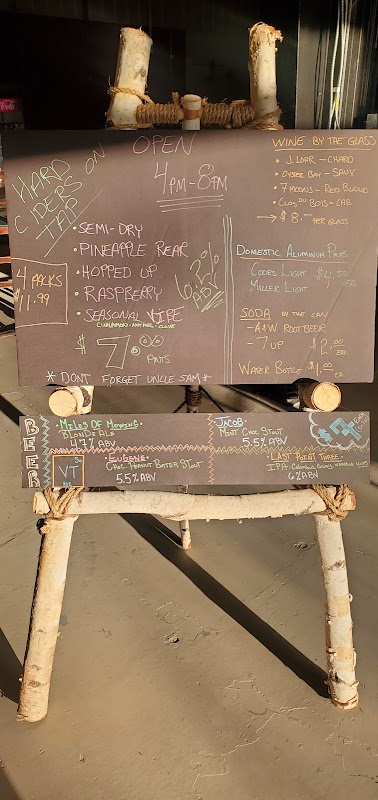 OPEN
4PM-8PM
HARD
CIDERS ON
TAP
• SEMI-DRY
• PINEAPPLE REAR
• HOPPED UP
• RASPBERRY
• SEASONAL VIBE
6.2%
ABV
4 PACKS
$11.99
$7.00/
PINTS
* DONT FORGET UNCLE SAM *
WINE BY THE GLASS
• J. LOHR - CHARD
• OYSTER BAY - SAUV
• 7 MOONS - RED BLEND
• CLOS DU BOIS - CAB
→ $8.- PER GLASS
DOMESTIC ALUMINUM PINTS
COORS LIGHT $4.50
MILLER LIGHT EA.
SODA BY THE CAN
- A&W ROOTBEER
- 7UP $2.00 EA.
WATER BOTTLE $1.00 EA.
BEER
BLONDE ALE
4.7% ABV
JACOB •
MINT CHOC STOUT
5.5% ABV
VT
• EUGENE •
CHOC PEANUT BUTTER STOUT
5.5% ABV
• LAST POINT THREE
IPA:
6% ABV